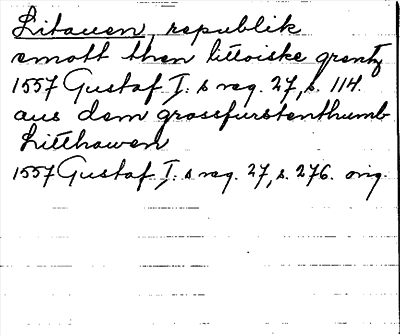 Litauen, republik
emott then littoiske grentz
1557 Gustaf I:s reg. 27, s. 114.
aus dem grossfurstenthumb
Litthawen
1557 Gustaf I:s reg. 27, s. 276. orig.